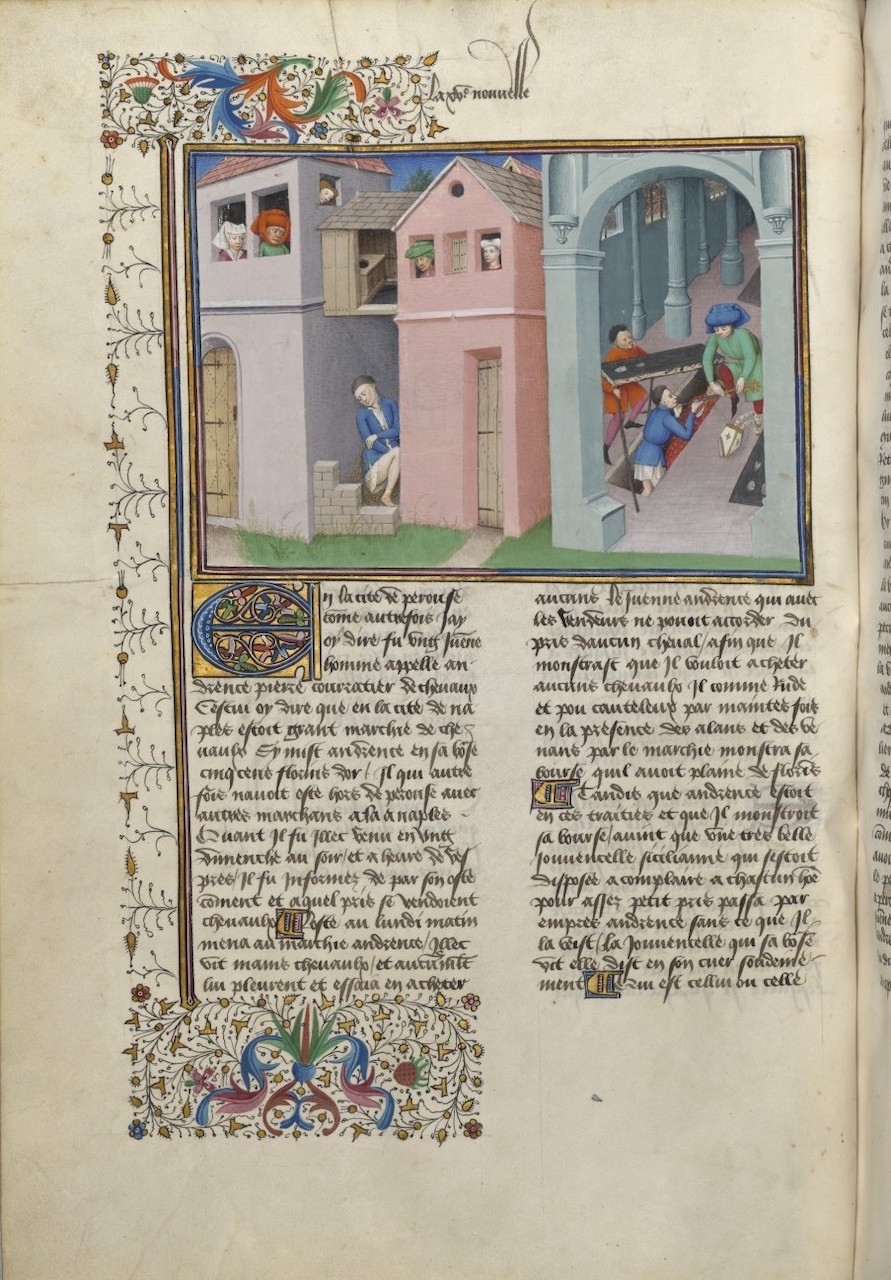 La xve nouvelle
En la cite de perouse
come autrefois Jay
oy dire fu vng Juene
homme appelle an-
drence pierre courratier de chevaux
Cestui oy dire que en la cite de na
ples estoit grant marchie de che
uaulx Sy mist andrence en sa bo1se
cinq cens florins dor / Il qui autre
fois nauoit este hors de perouse auec
autres marchans ala a naples -
Quant Il fu Illec venu en vng
dimenche au soir / et a heure de ves
pres / Il fu Informez de par son oste
coment et a quel pris se vendoient
cheuaulx Loste au lundi matin
mena au marchie andrence / Illec
vit mains cheuaulx / et
lui pleurent et essaia en acheter
aucuns le Juenne andrence qui auec
les vendeurs ne pouoit accorder du
pris daucun cheual / afin que Il
monstrast que Il vouloit acheter
aucuns cheuaulx Il comme Rude
et pou cauteleux par maintes fois
en la presence des alans et des ve
nans par le marchie monstra sa
bourse quil auoit plaine de florins
Tandis que andrence estoit
en ces traities et que Il monstroit
sa bourse / auint que vne tres belle
Jouuencelle sicilianne qui sestoit
disposee a complaire a chascun hoe
pour assez petit pris passa par
empres andrence sans ce que Il
la veist / La Jouuencelle qui sa bo1se
vit elle dist en son cuer soudeine-
ment Qui est cellui ou celle